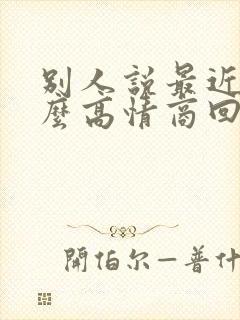 別人說最近
麼高情商回
開怕尔—普什